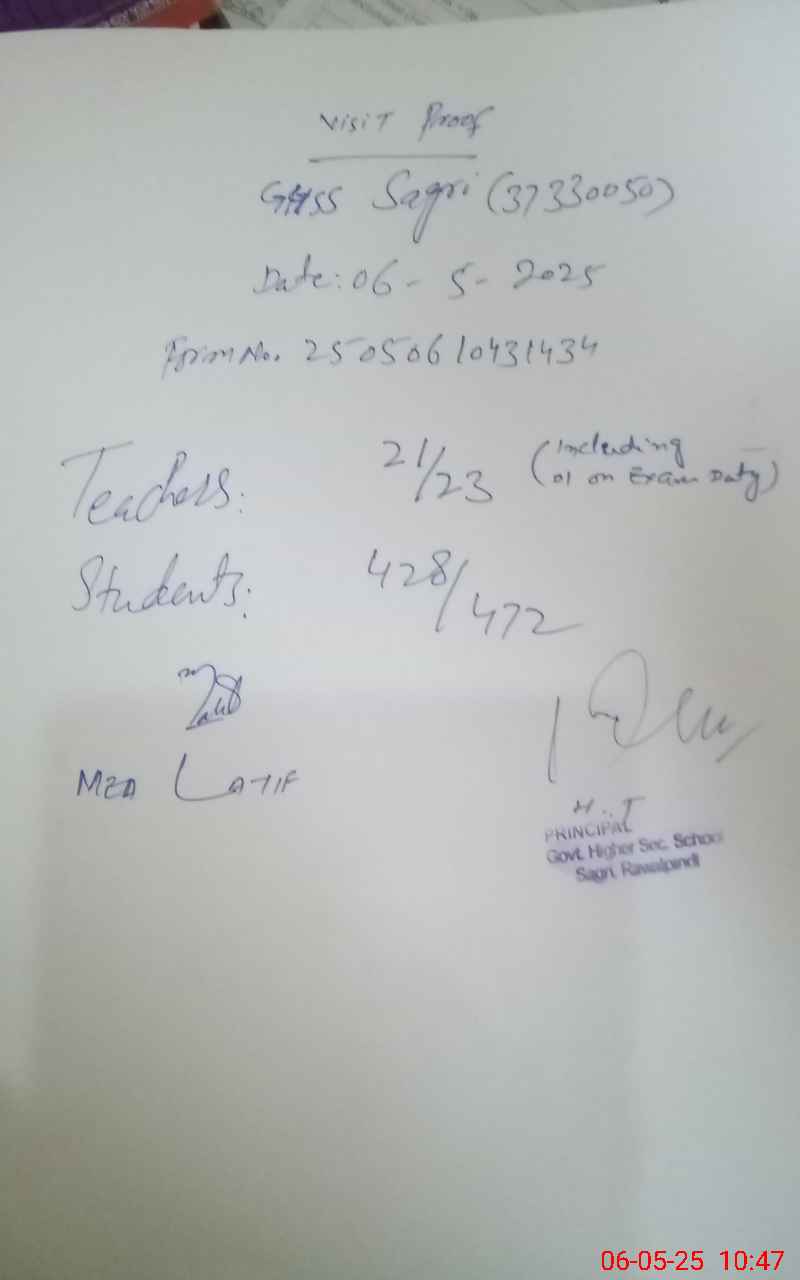 Visit Proof
GHSS Sagri (37330050)
Date: 06 - 5 - 2025
Form No. 25050610431434
Teachers: 21/23 (including 01 on Exam Duty)
Students: 428/472
MEA LATIF
H.T
PRINCIPAL
Govt. Higher Sec. School
Sagri, Rawalpindi
06-05-25 10:47